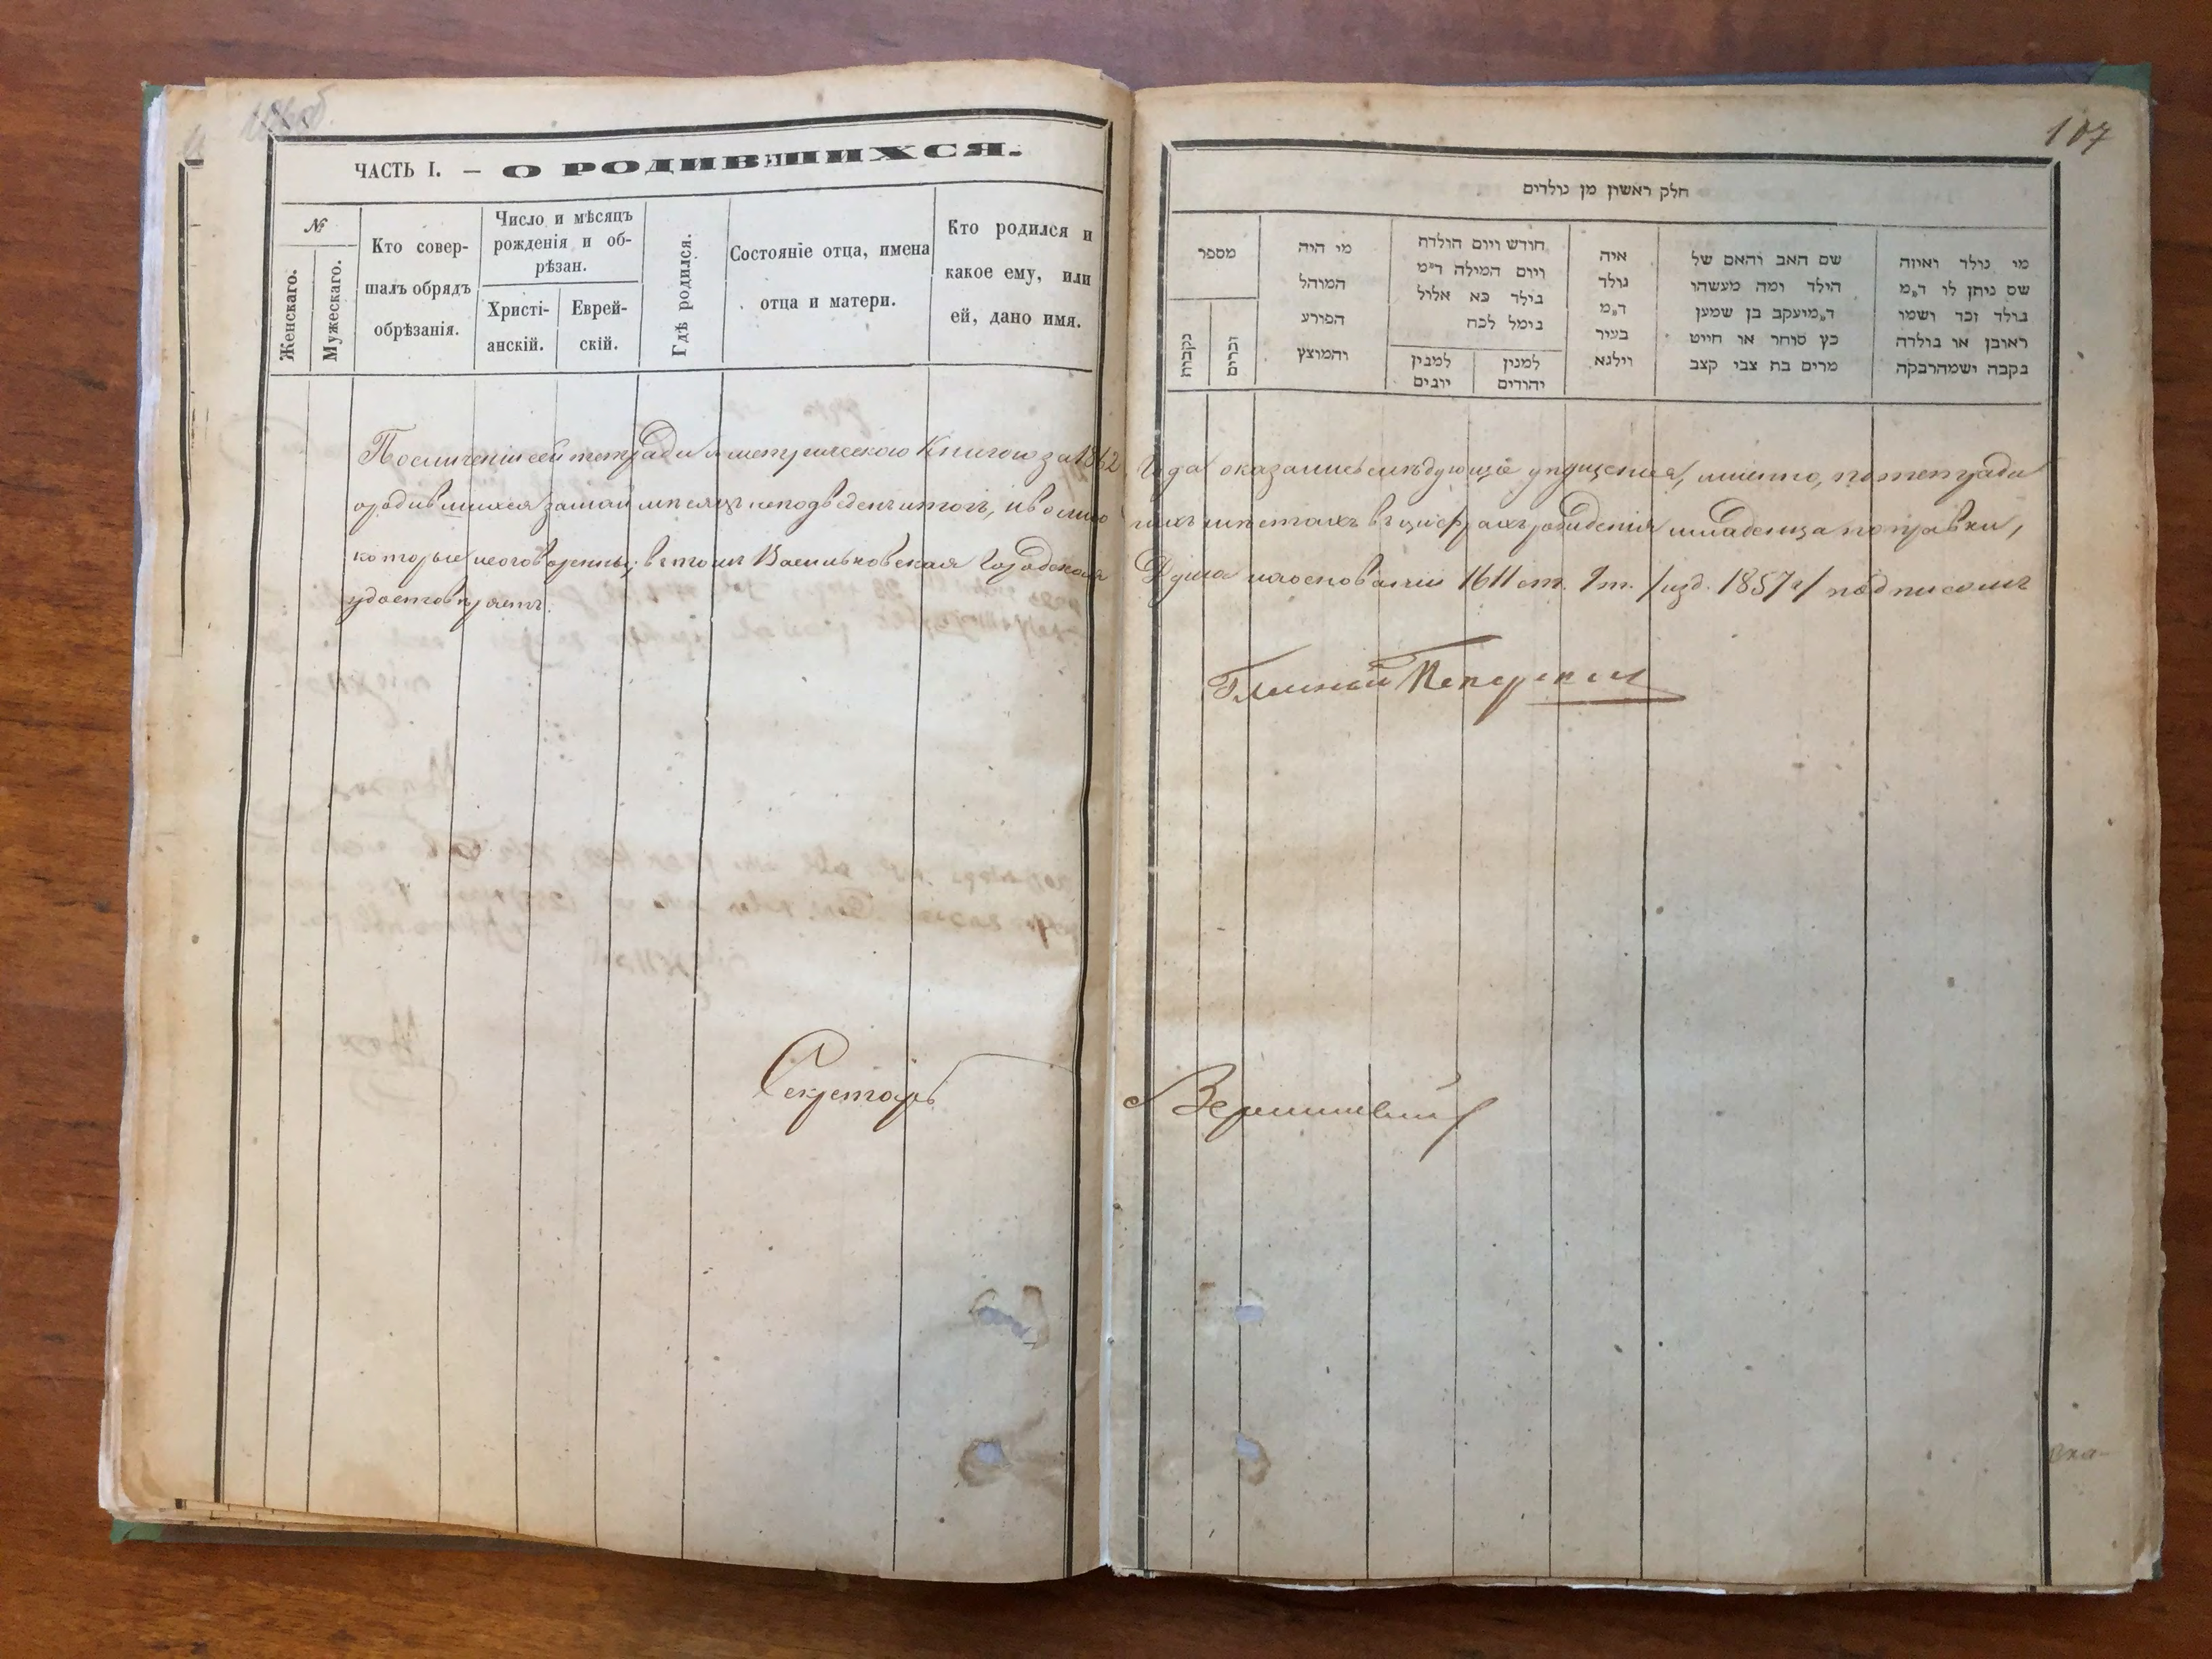 ЧАСТЬ I. — О РОДИВШИХСЯ.
№
Женскаго.
Мужескаго.
Кто совер-
шалъ обрядъ
обрѣзанія.
Число и мѣсяцъ
рожденія и об-
рѣзан.
Христі-
анскій.
Еврей-
скій.
Гдѣ родился.
Состояніе отца, имена
отца и матери.
Кто родился и
какое ему, или
ей, дано имя.
107
חלק ראשון מן נולדים
מספר
נקבות
זכרים
מי היה
המוהל
הפורע
והמוצץ
חודש ויום הולדת
ויום המילה ד״מ
נולד כא אלול
נימל לכח
למנין
יונים
למנין
יהודים
איה
נולד
ד״מ
בעיר
ווילנא
שם האב והאם של
הילד ומה מעשהו
ד״מ יעקב בן שמעון
כץ סוחר או חייט
מרים בת צבי קצב
מי נולד ואיזה
שם ניתן לו ד״מ
נולד זכר ושמו
ראובן או נולדה
נקבה ושמה רבקה
По сличеніи сей тетради с метрическою Книгою за 1862 Года оказались слѣдующіе упущенія, именно, по тетради
о родившихся за май мѣсяцъ неподведенъ итогъ, и во многихъ мѣстахъ въ цифрахъ рожденія младенца поправки,
которые неоговоренны; въ томъ Васильковская Городская Дума на основаніи 1611 ст. 9 т. /изд. 1857 г/ подписомъ
удостовѣряетъ.
Гласный
Секретарь